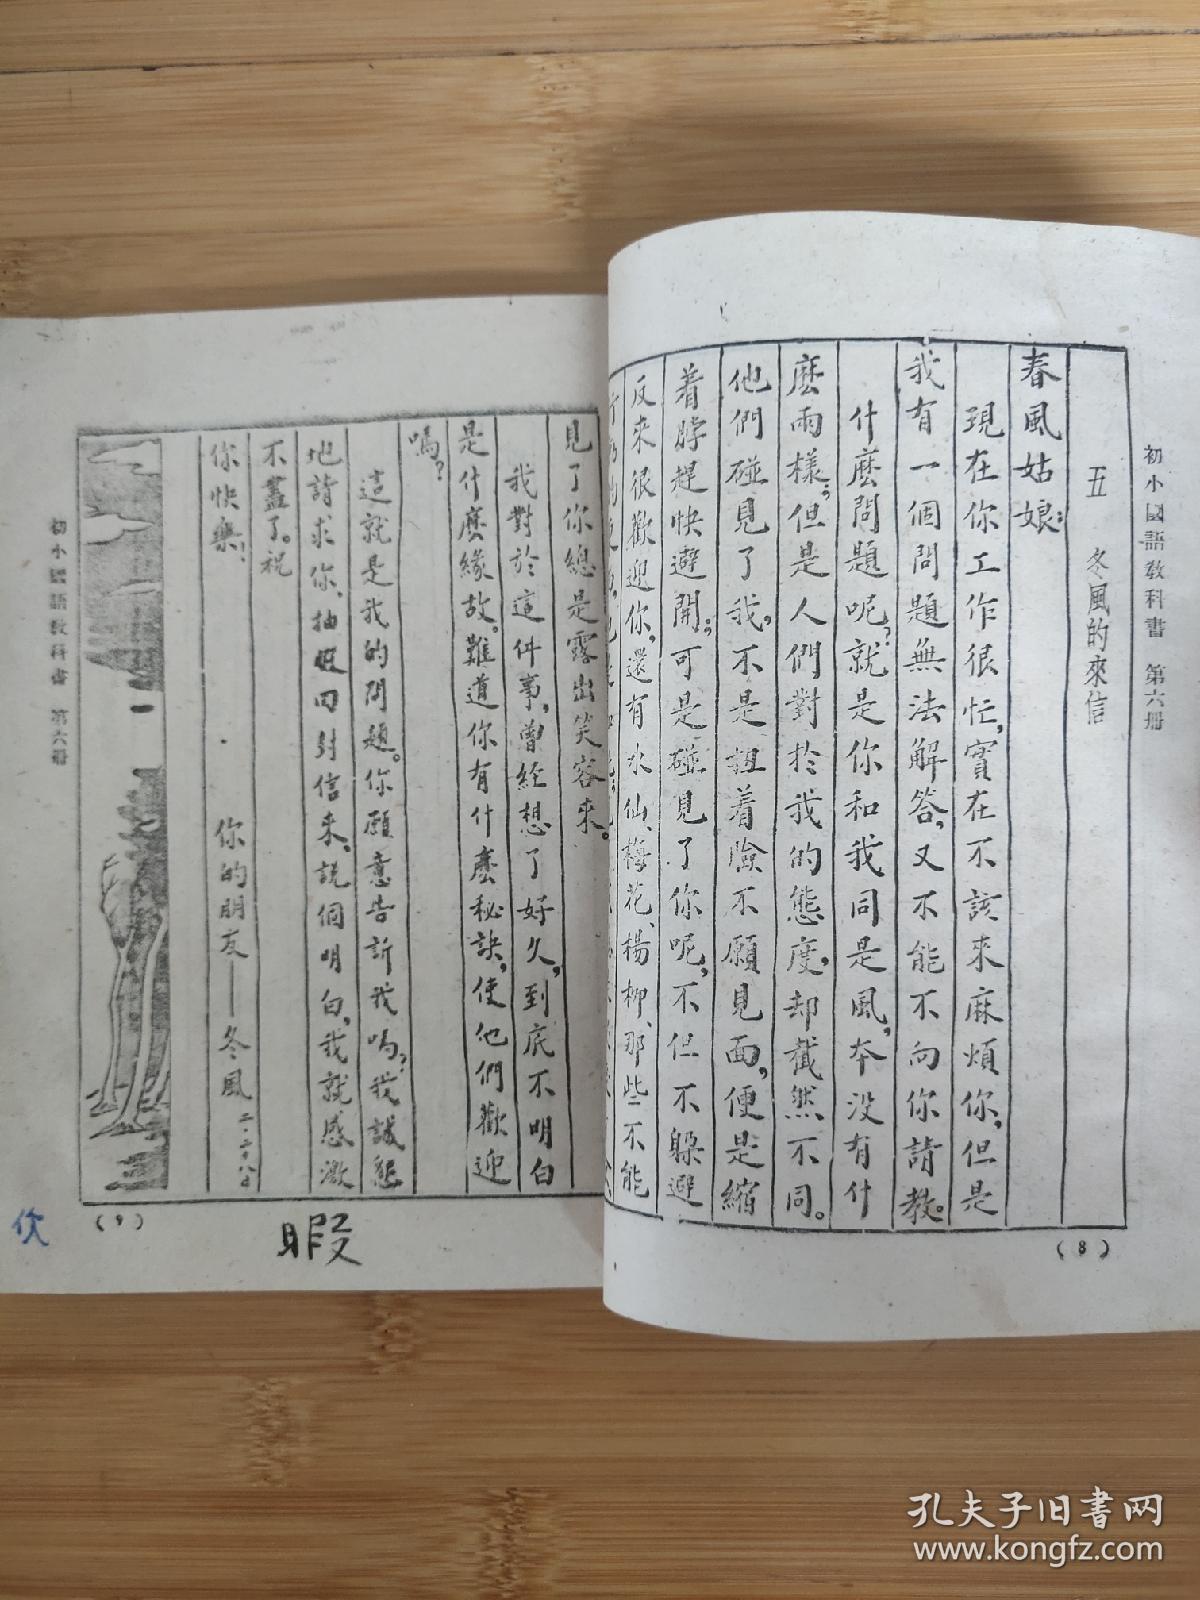 初小國語教科書 第六册
五 冬風的來信
春風姑娘：
現在你工作很忙，實在不該來麻煩你，但是
我有一個問題無法解答，又不能不向你請教。
什麼問題呢？就是你和我同是風，本没有什
麼兩樣；但是人們對於我的態度，却截然不同。
他們碰見了我，不是扭着臉不願見面，便是縮
着脖趕快避開；可是碰見了你呢，不但不躲避
反來很歡迎你，還有水仙、梅花、楊柳、那些不能
(8)
見了你總是露出笑容來。
我對於這件事，曾經想了好久，到底不明白
是什麼緣故。難道你有什麼秘訣，使他們歡迎
嗎？
這就是我的問題。你願意告訴我嗎？我誠懇
地請求你，抽暇回封信來，説個明白，我就感激
不盡了。祝
你快樂！
你的朋友—冬風 二·十八
初小國語教科書 第六册
(9)
暇
孔夫子旧书网
www.kongfz.com